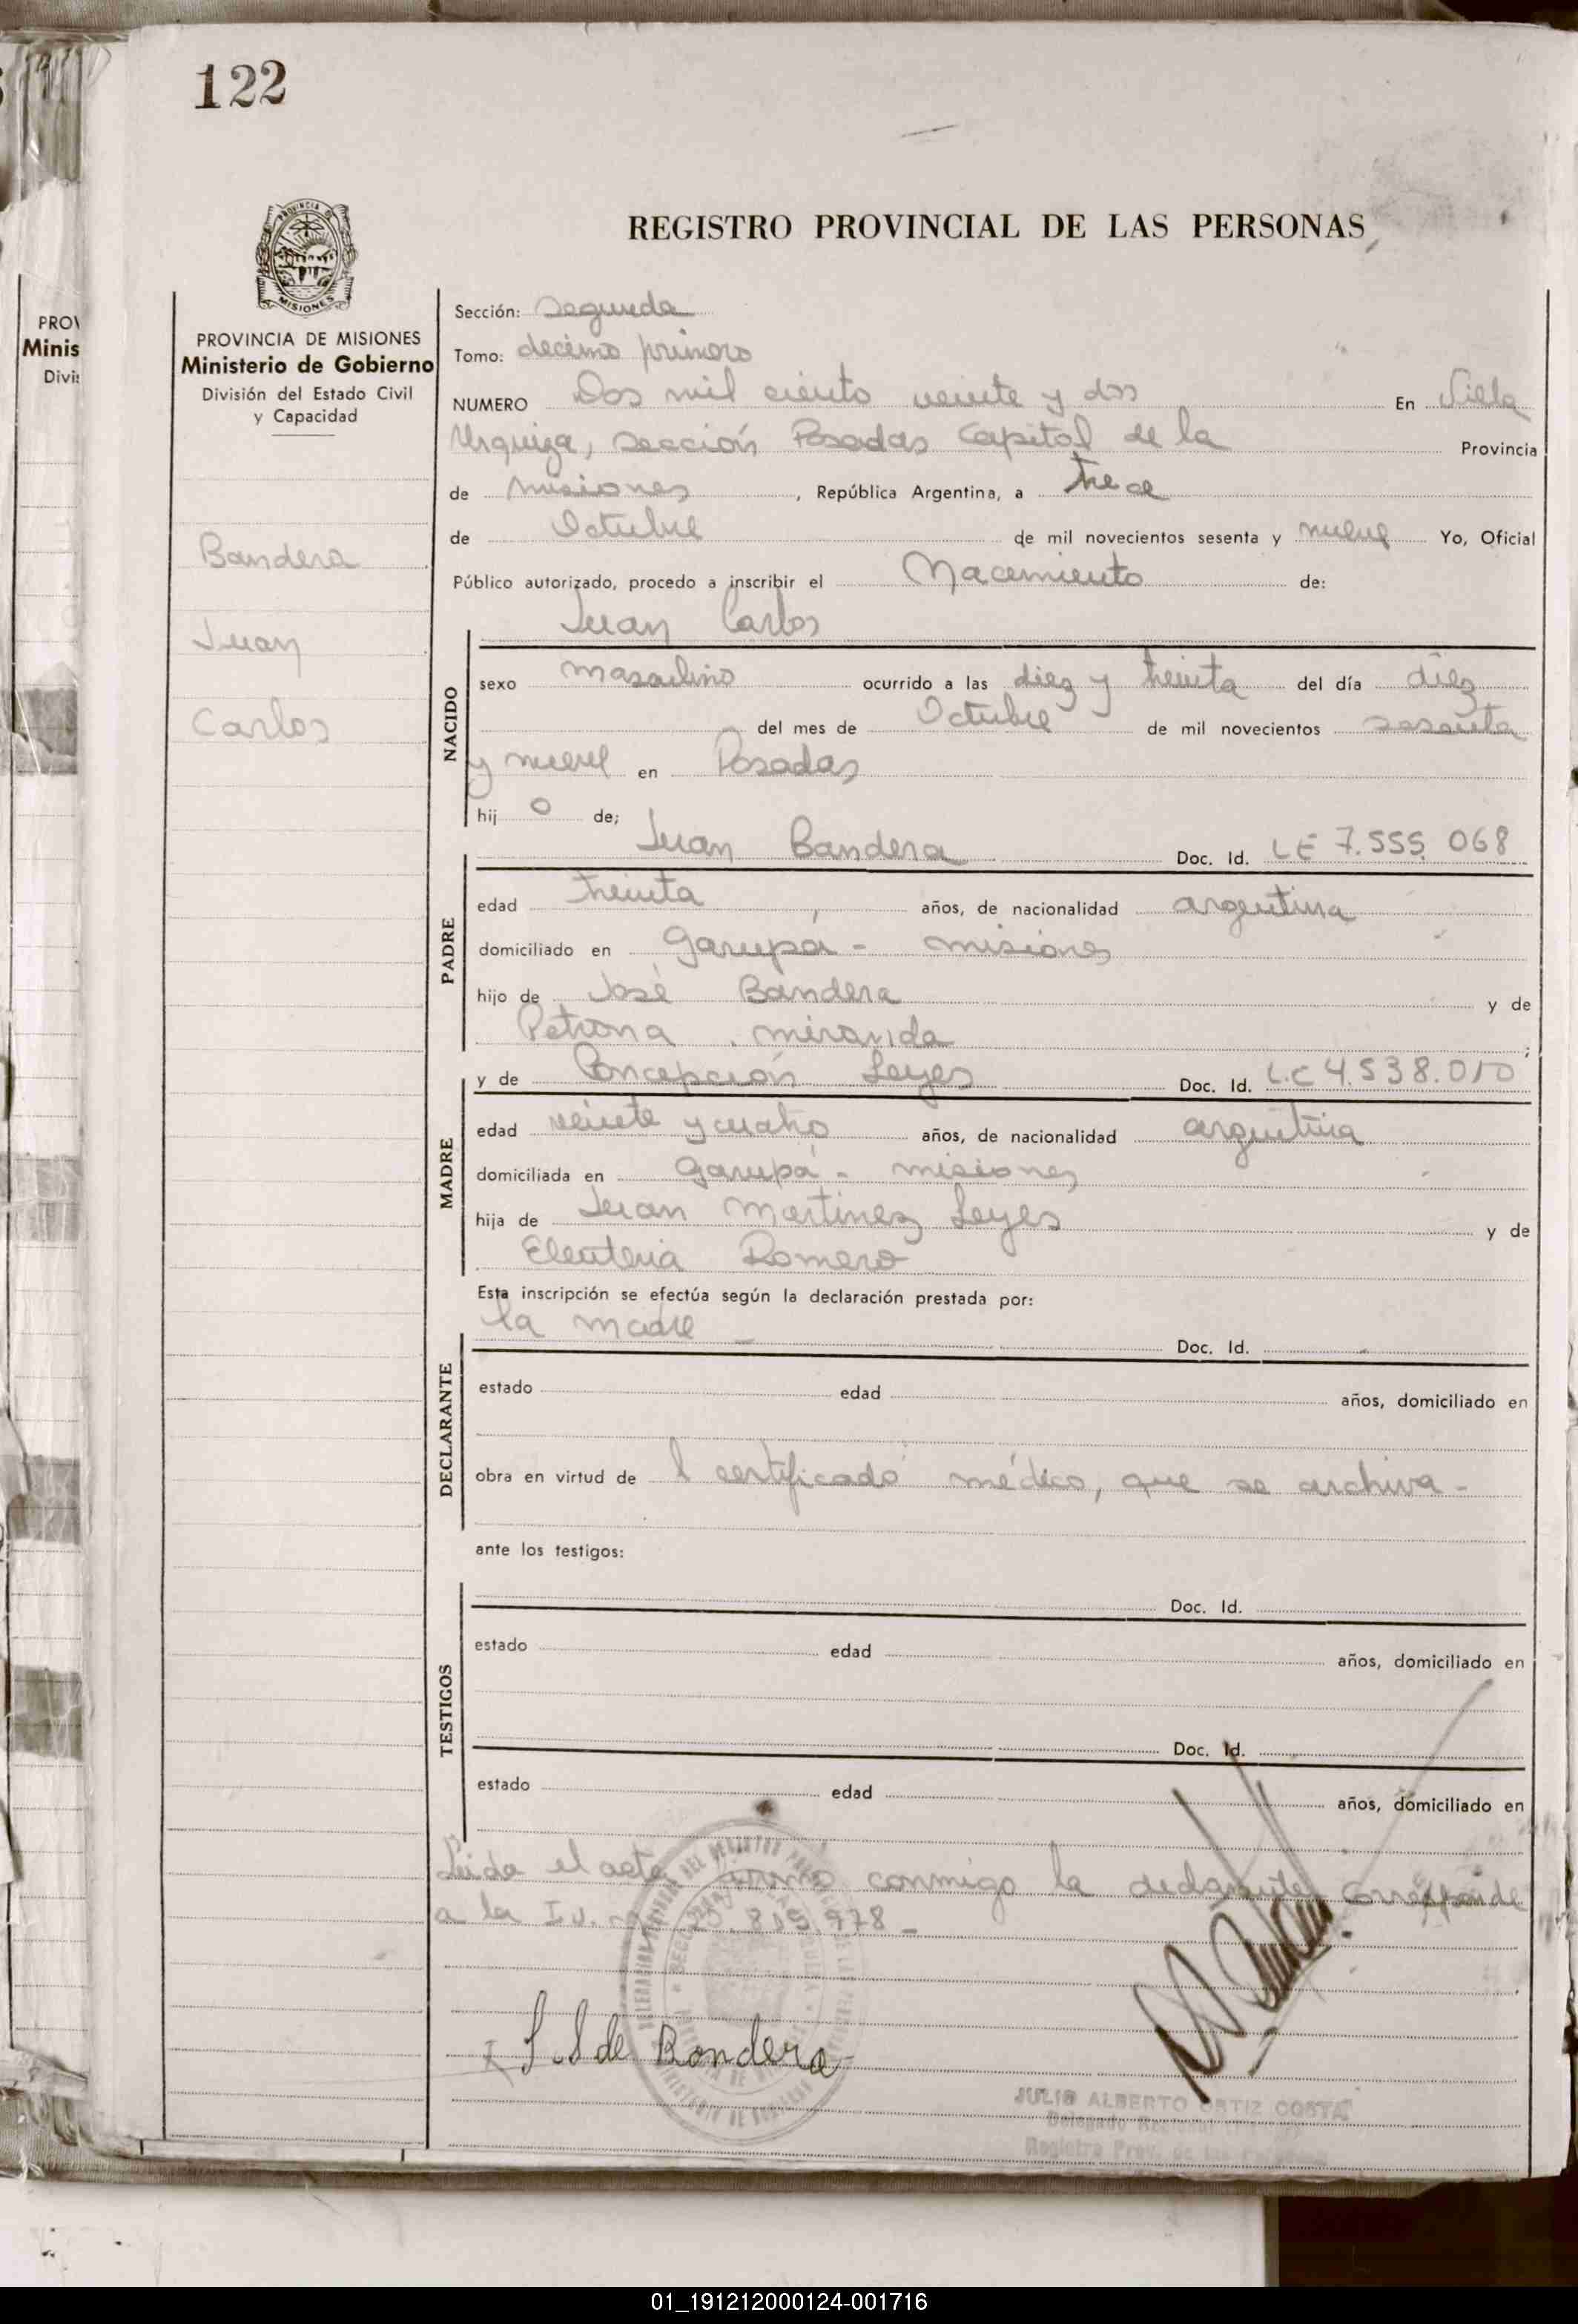 122
PROVINCIA DE
MISIONES
REGISTRO PROVINCIAL DE LAS PERSONAS
PROV
Minis
Divi
PROVINCIA DE MISIONES
Ministerio de Gobierno
División del Estado Civil
y Capacidad
Bandera
Juan
Carlos
Sección: Segunda
Tomo: décimo primero
NUMERO Dos mil ciento veinte y dos En Villa
Urquiza, sección Posadas Capital de la Provincia
de Misiones, República Argentina, a trece
de Octubre de mil novecientos sesenta y nueve Yo, Oficial
Público autorizado, procedo a inscribir el Nacemiento de:
Juan Carlos
NACIDO
sexo masculino ocurrido a las diez y treinta del día diez
del mes de Octubre de mil novecientos sesenta
y nueve en Posadas
hij o de;
Juan Bandera Doc. Id. LE 7.555.068
PADRE
edad treinta años, de nacionalidad argentina
domiciliado en Garupá - misiones
hijo de José Bandera y de
Petrona miranda ;
y de Concepción Leyes Doc. Id. L.C 4.538.010
MADRE
edad veinte y cuatro años, de nacionalidad argentina
domiciliada en Garupá - misiones
hija de Juan Martinez Leyes y de
Eleuteria Romero
Esta inscripción se efectúa según la declaración prestada por:
la madre - Doc. Id.
DECLARANTE
estado edad años, domiciliado en
obra en virtud de l certificado médico, que se archiva -
ante los testigos:
Doc. Id.
TESTIGOS
estado edad años, domiciliado en
Doc. Id.
estado edad años, domiciliado en
Leida el acta firma conmigo la declarante, corresponde
a la I.U. .819.978 -
de Bandera
JULIO ALBERTO ORTIZ COSTA
Delegado
Registro Prov. de las
01_191212000124-001716